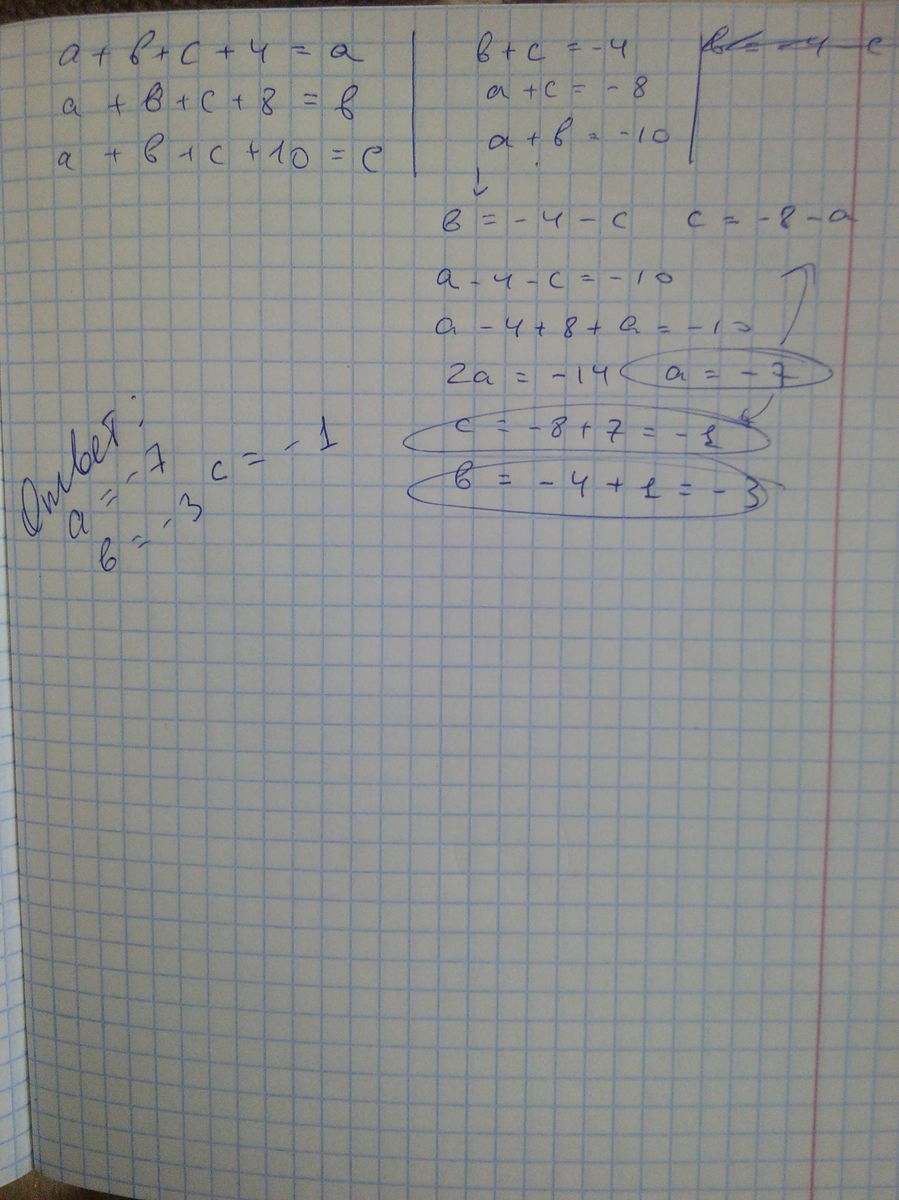 а + в + с + 4 = а
а + в + с + 8 = в
а + в + с + 10 = с
в + с = -4
а + с = -8
а + в = -10
в = -4 - с
в = -4 - с    с = -8 - а
а - 4 - с = -10
а - 4 + 8 + а = -10
2а = -14    а = -7
с = -8 + 7 = -1
в = -4 + 1 = -3
Ответ:
а = -7    с = -1
в = -3